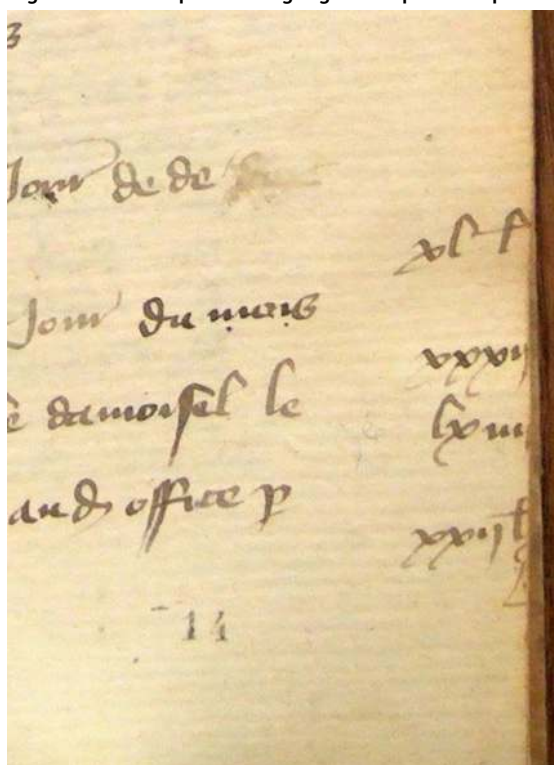 3
Jour de de
xl f
Jour du mois
xxxii
damoisel le
lxiii
and office p
xxiij
14